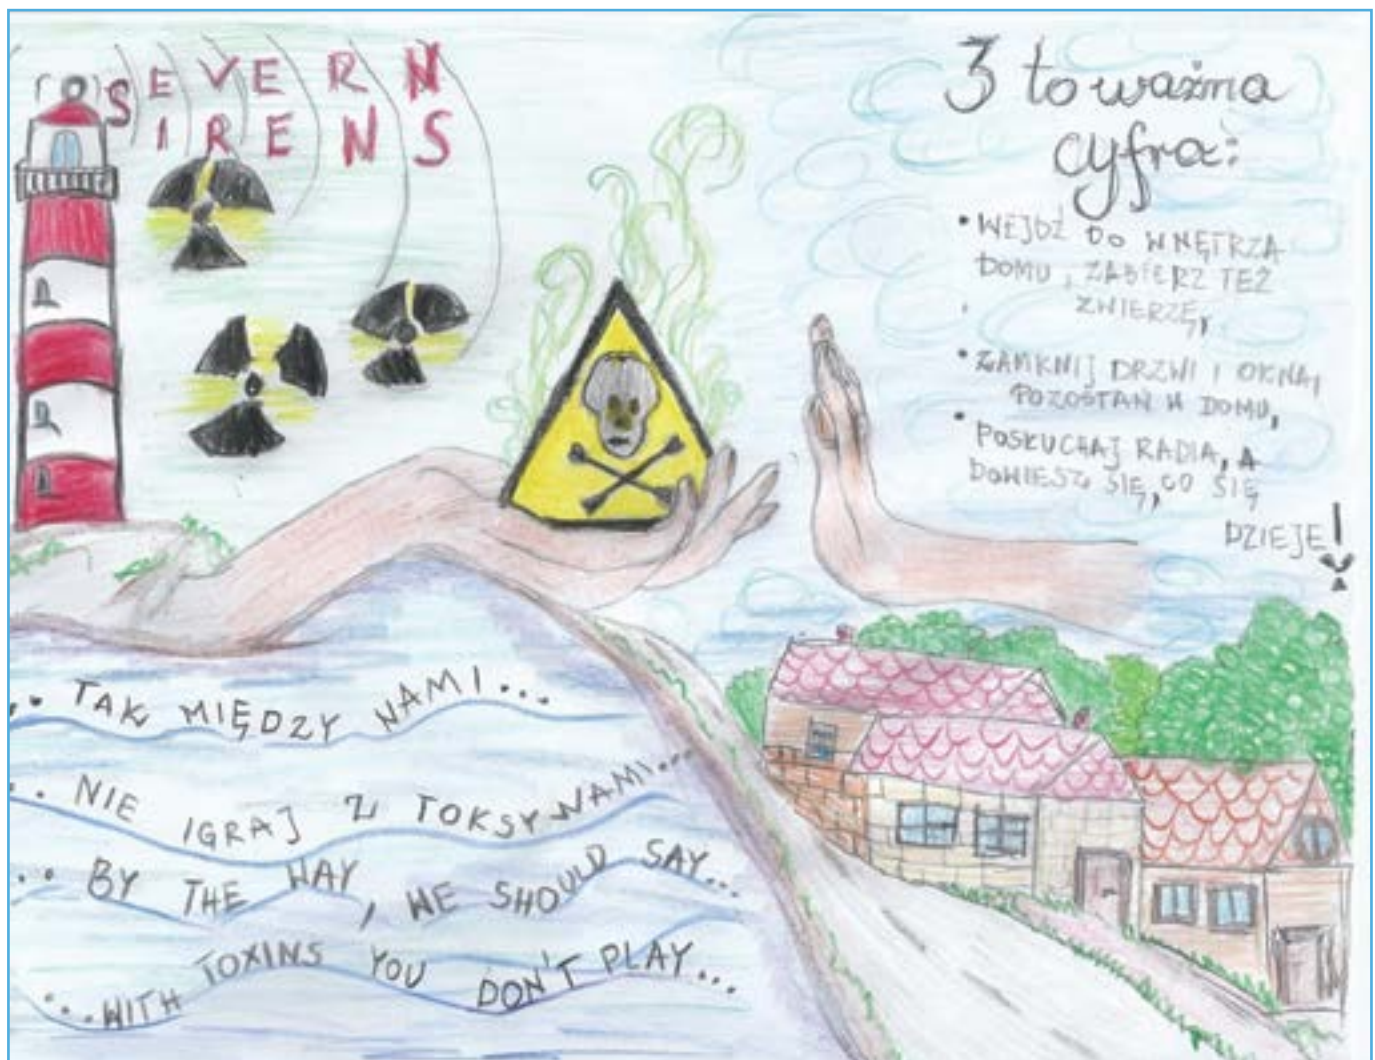 SEVERN
SIRENS
3 to ważna
cyfra:
• WEJDŹ DO WNĘTRZA
DOMU, ZABIERZ TEŻ
ZWIERZĘ,
• ZAMKNIJ DRZWI I OKNA,
POZOSTAŃ W DOMU,
• POSŁUCHAJ RADIA, A
DOWIESZ SIĘ, CO SIĘ
DZIEJE!
... TAK MIĘDZY NAMI...
... NIE IGRAJ Z TOKSYNAMI...
... BY THE WAY, WE SHOULD SAY...
... WITH TOXINS YOU DON'T PLAY...